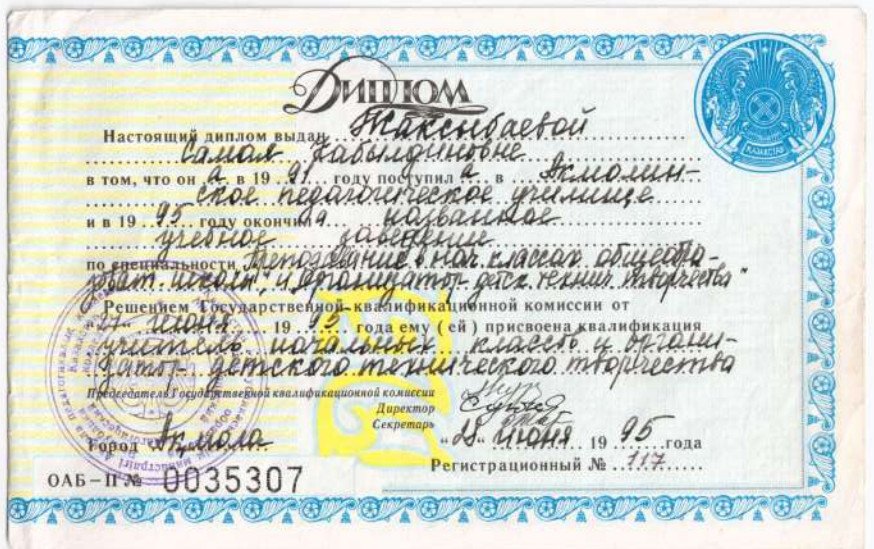 Диплом
Настоящий диплом выдан Жаксыбаевой
Кабылдиновне
в том, что он а в 19 91 году поступил а в Акмолин-
ское педагогическое училище
и в 19 95 году окончил а названное
учебное заведение
по специальности „Преподавание в нач. классах общеобра-
зоват. школы, и организатор детск. технич. творчества"
Решением Государственной квалификационной комиссии от
"27" июня 19 95 года ему (ей) присвоена квалификация
учитель начальных классов и органи-
затор детского технического творчества
Председатель Государственной квалификационной комиссии
Директор
Секретарь
Город Акмола "28" июня 19 95 года
Регистрационный № 117
ОАБ-II № 0035307
ҚАЗАҚСТАН